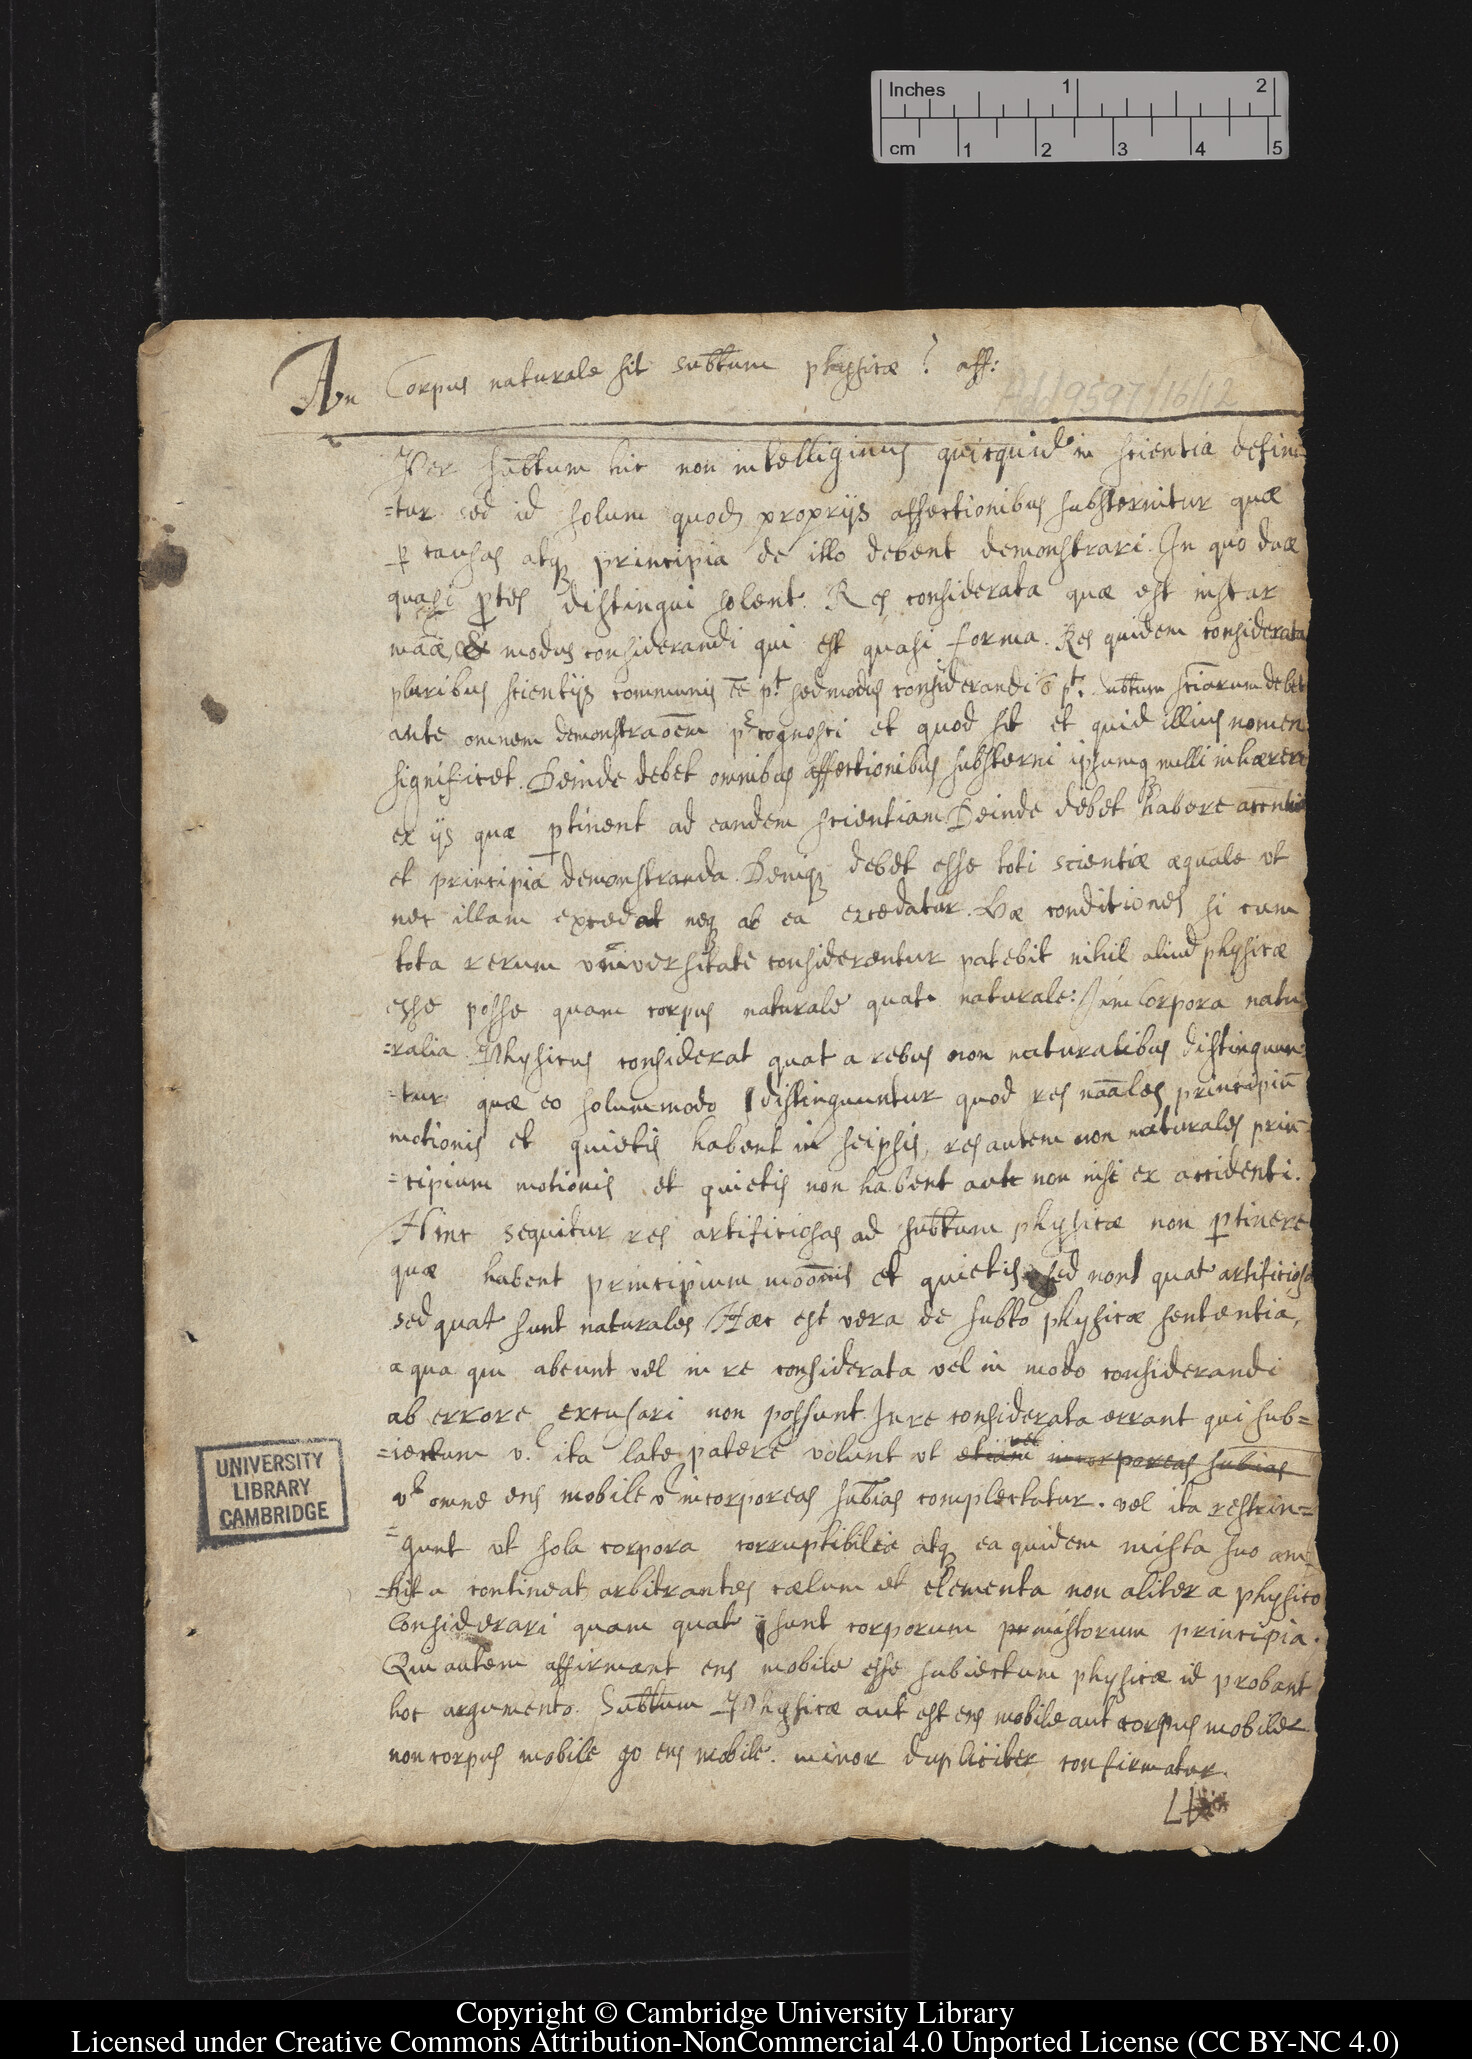 Inches 1 2
cm 1 2 3 4 5
An Corpus naturale sit subtum physicæ? aff:
Add 9597/16/12
Per subtum hic non intelligimus quicquid in scientia defini=
=tur sed id solum quod proprijs affectionibus substernitur quæ
p causas atq principia de illo debent demonstrari. In quo duæ
quasi ptes distingui solent. Res considerata quæ est instar
māæ, & modus considerandi qui est quasi forma. Res quidem considerata
pluribus scientijs communis ēe pt sed modus considerandi ō pt. subtum sciarum debet
ante omnem demonstraōem pcognosci et quod sit et quid illius nomen
significet. Deinde debet omnibus affectionibus substerni ipsumq nulli inhærere
ex ijs quæ ptinent ad eandem scientiam Deinde debet habere
et principia demonstranda. Deniq debet esse toti scientiæ æquale vt
nec illam excedat neq ab ea excedatur. Hæ conditiones si cum
tota rerum vniversitate considerentur patebit nihil aliud physicæ
esse posse quam corpus naturale quat. naturale: Jam Corpora natu
=ralia Physicus considerat quat a rebus non naturalibus distinguun
=tur quæ eo solummodo distinguuntur quod res nāales principiū
motionis et quietis habent in seipsis, res autem non naturales prin=
=cipium motionis et quietis non habent aut non nisi ex accidenti.
Hinc sequitur res artificiosas ad subtum physicæ non ptinere
quæ habent principium mōonis et quietis sed non quat artificiosa
sed quat sunt naturales. Hæc est vera de subto physicæ sententia,
a qua qui abeunt vel in re considerata vel in modo considerandi
ab errore excusari non possunt. In re considerata errant qui sub=
=iectum v. ita late patere volunt vt etiam vel incorporeas subias
vt omne ens mobile v incorporeas subias complectatur. vel ita restrin=
=gunt vt sola corpora corruptibilia atq ea quidem mista suo am=
=bitu contineat arbitrantes cælum et elementa non aliter a physico
Considerari quam quat sunt corporum mistorum principia.
Qui autem affirmant ens mobile esse subiectum physicæ id probant
hoc argumento. Subtum Physicæ aut est ens mobile aut corpus mobile
non corpus mobile go ens mobile. minor dupliciter confirmatur.
UNIVERSITY
LIBRARY
CAMBRIDGE
Copyright © Cambridge University Library
Licensed under Creative Commons Attribution-NonCommercial 4.0 Unported License (CC BY-NC 4.0)